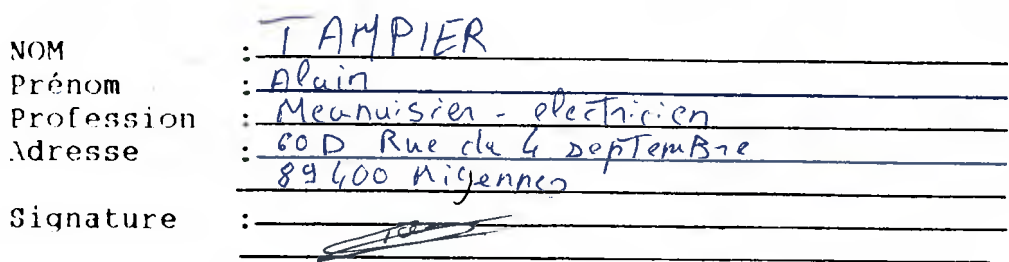 NOM : TAMPIER
Prénom : Alain
Profession : Meunuisier - electricien
Adresse : 60 D Rue du 4 septemBre
89400 Migennes
Signature :